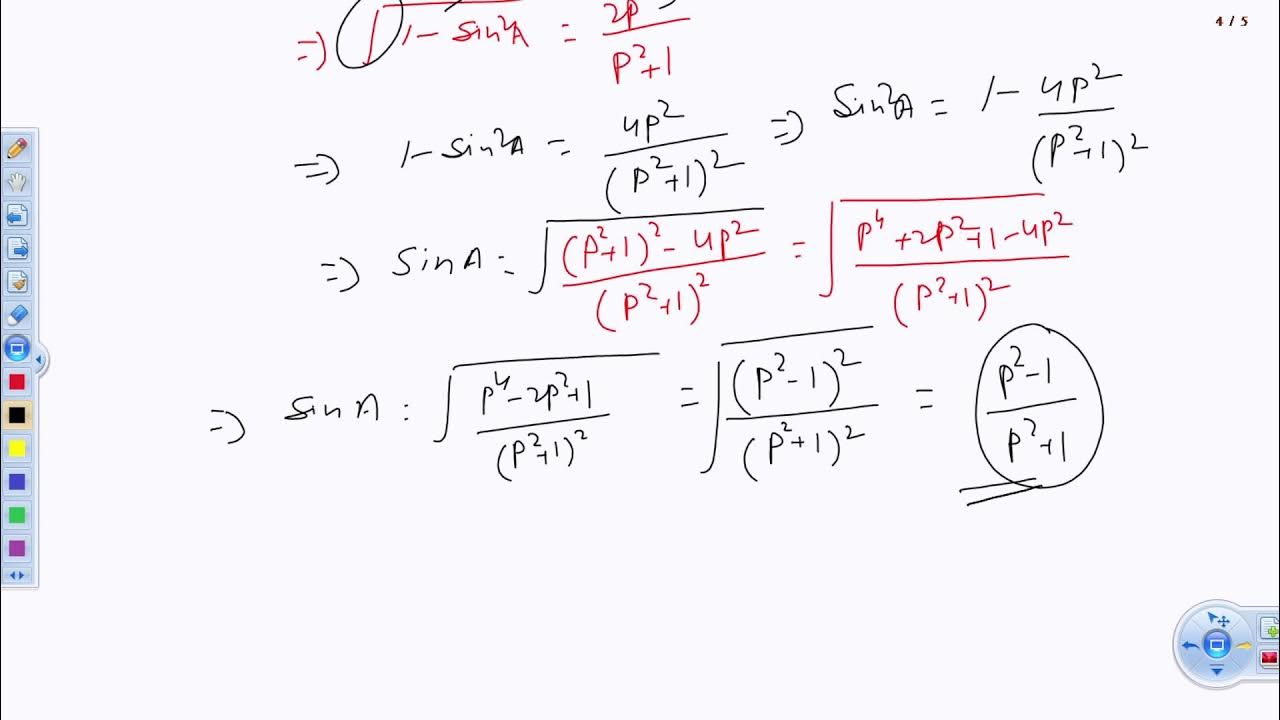 4 / 5
=> √(1 - sin²A) = 2p / (p²+1)
=> 1 - sin²A = 4p² / (p²+1)² => sin²A = 1 - 4p² / (p²+1)²
=> sin A = √(((p²+1)² - 4p²) / (p²+1)²) = √((p⁴ + 2p² + 1 - 4p²) / (p²+1)²)
=> sin A = √((p⁴ - 2p² + 1) / (p²+1)²) = √((p² - 1)² / (p² + 1)²) = (p² - 1) / (p² + 1)